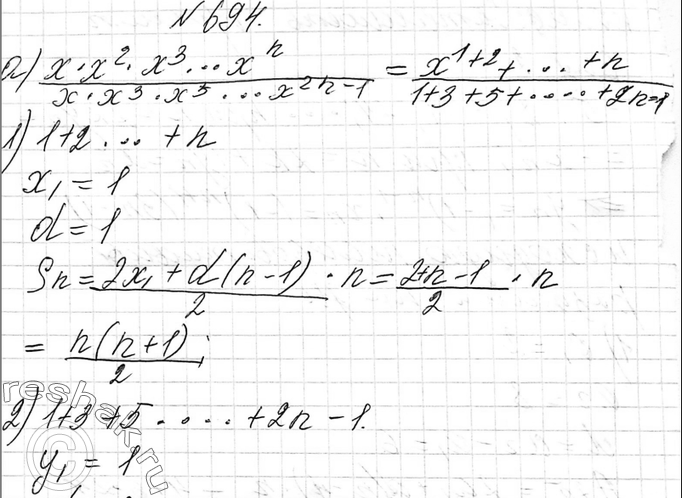 № 694.
а) x·x²·x³...xⁿ / x·x³·x⁵...x²ⁿ⁻¹ = x¹⁺²+...+n / 1+3+5+.....+2n=1
1) 1+2...+n
x₁=1
d=1
Sn = 2x₁+d(n-1) / 2 · n = 2+n-1 / 2 · n
= n(n+1) / 2 ;
2) 1+3+5.....+2n-1.
y₁=1
reshak.ru